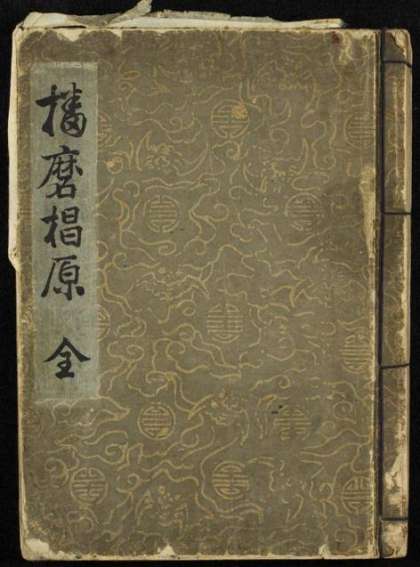 播磨椙原 全